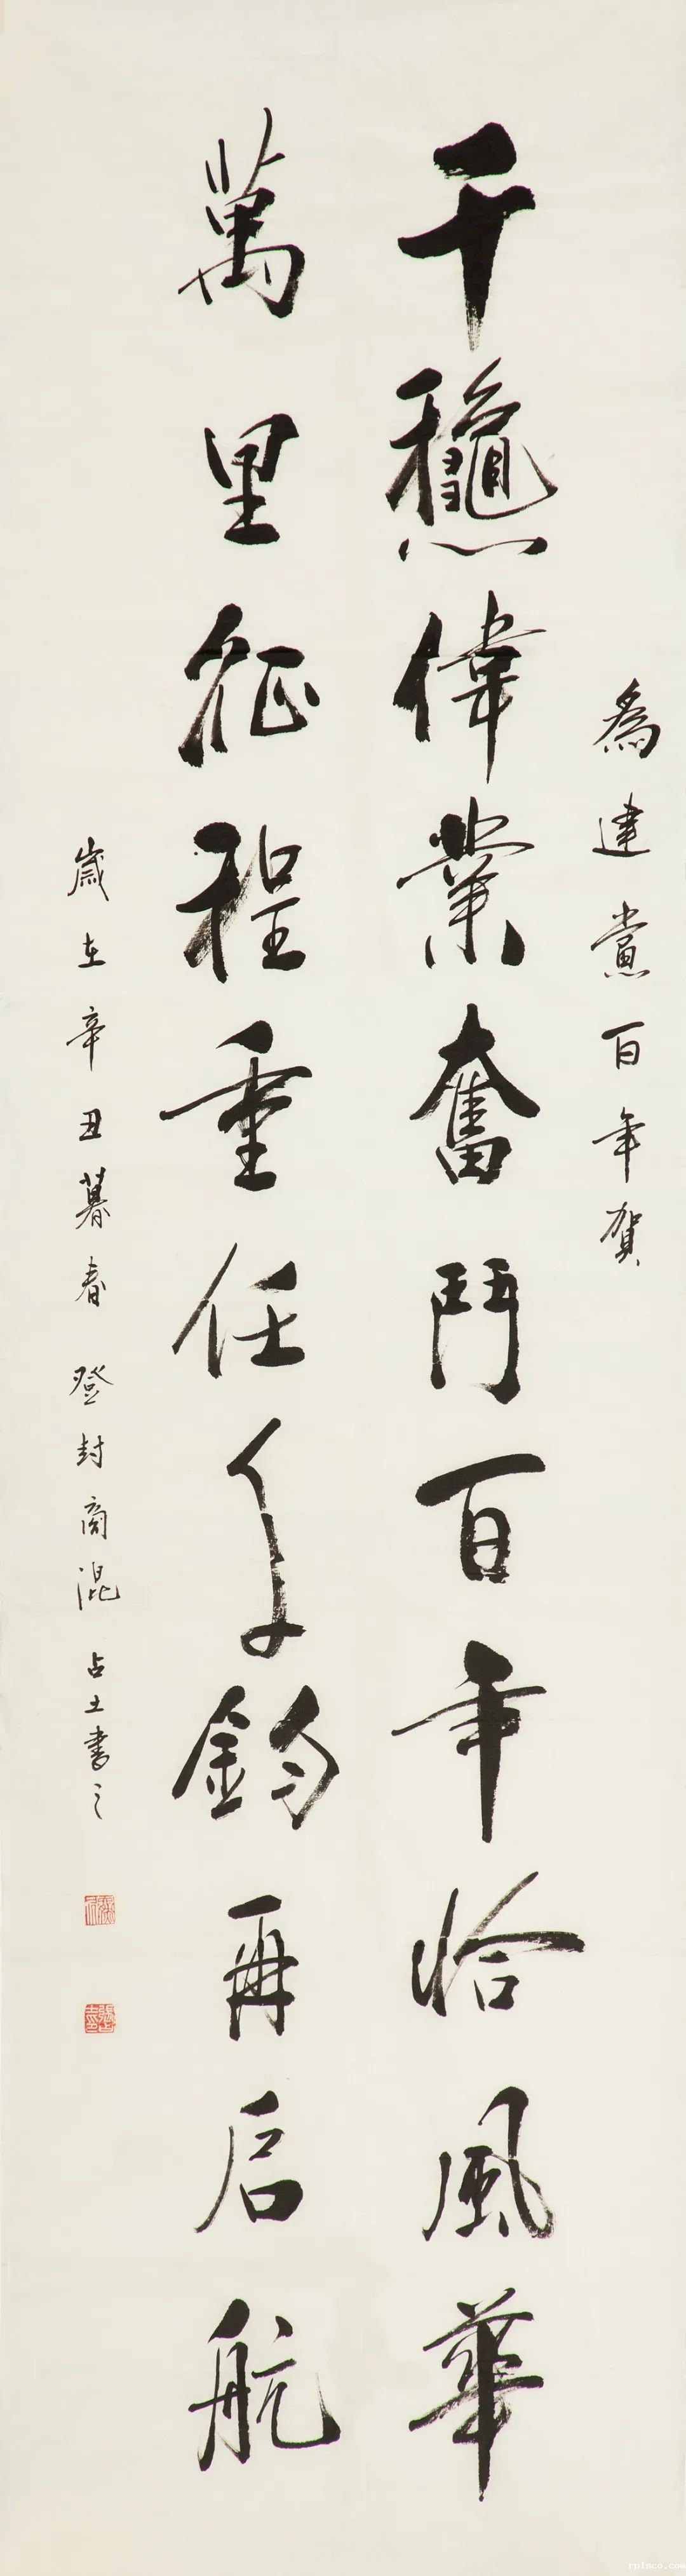 為建黨百年賀
千龝偉業奮鬥百年恰風華
萬里征程重任千鈞再启航
歲在辛丑暮春 登封商混 占土書之
rplsco.com